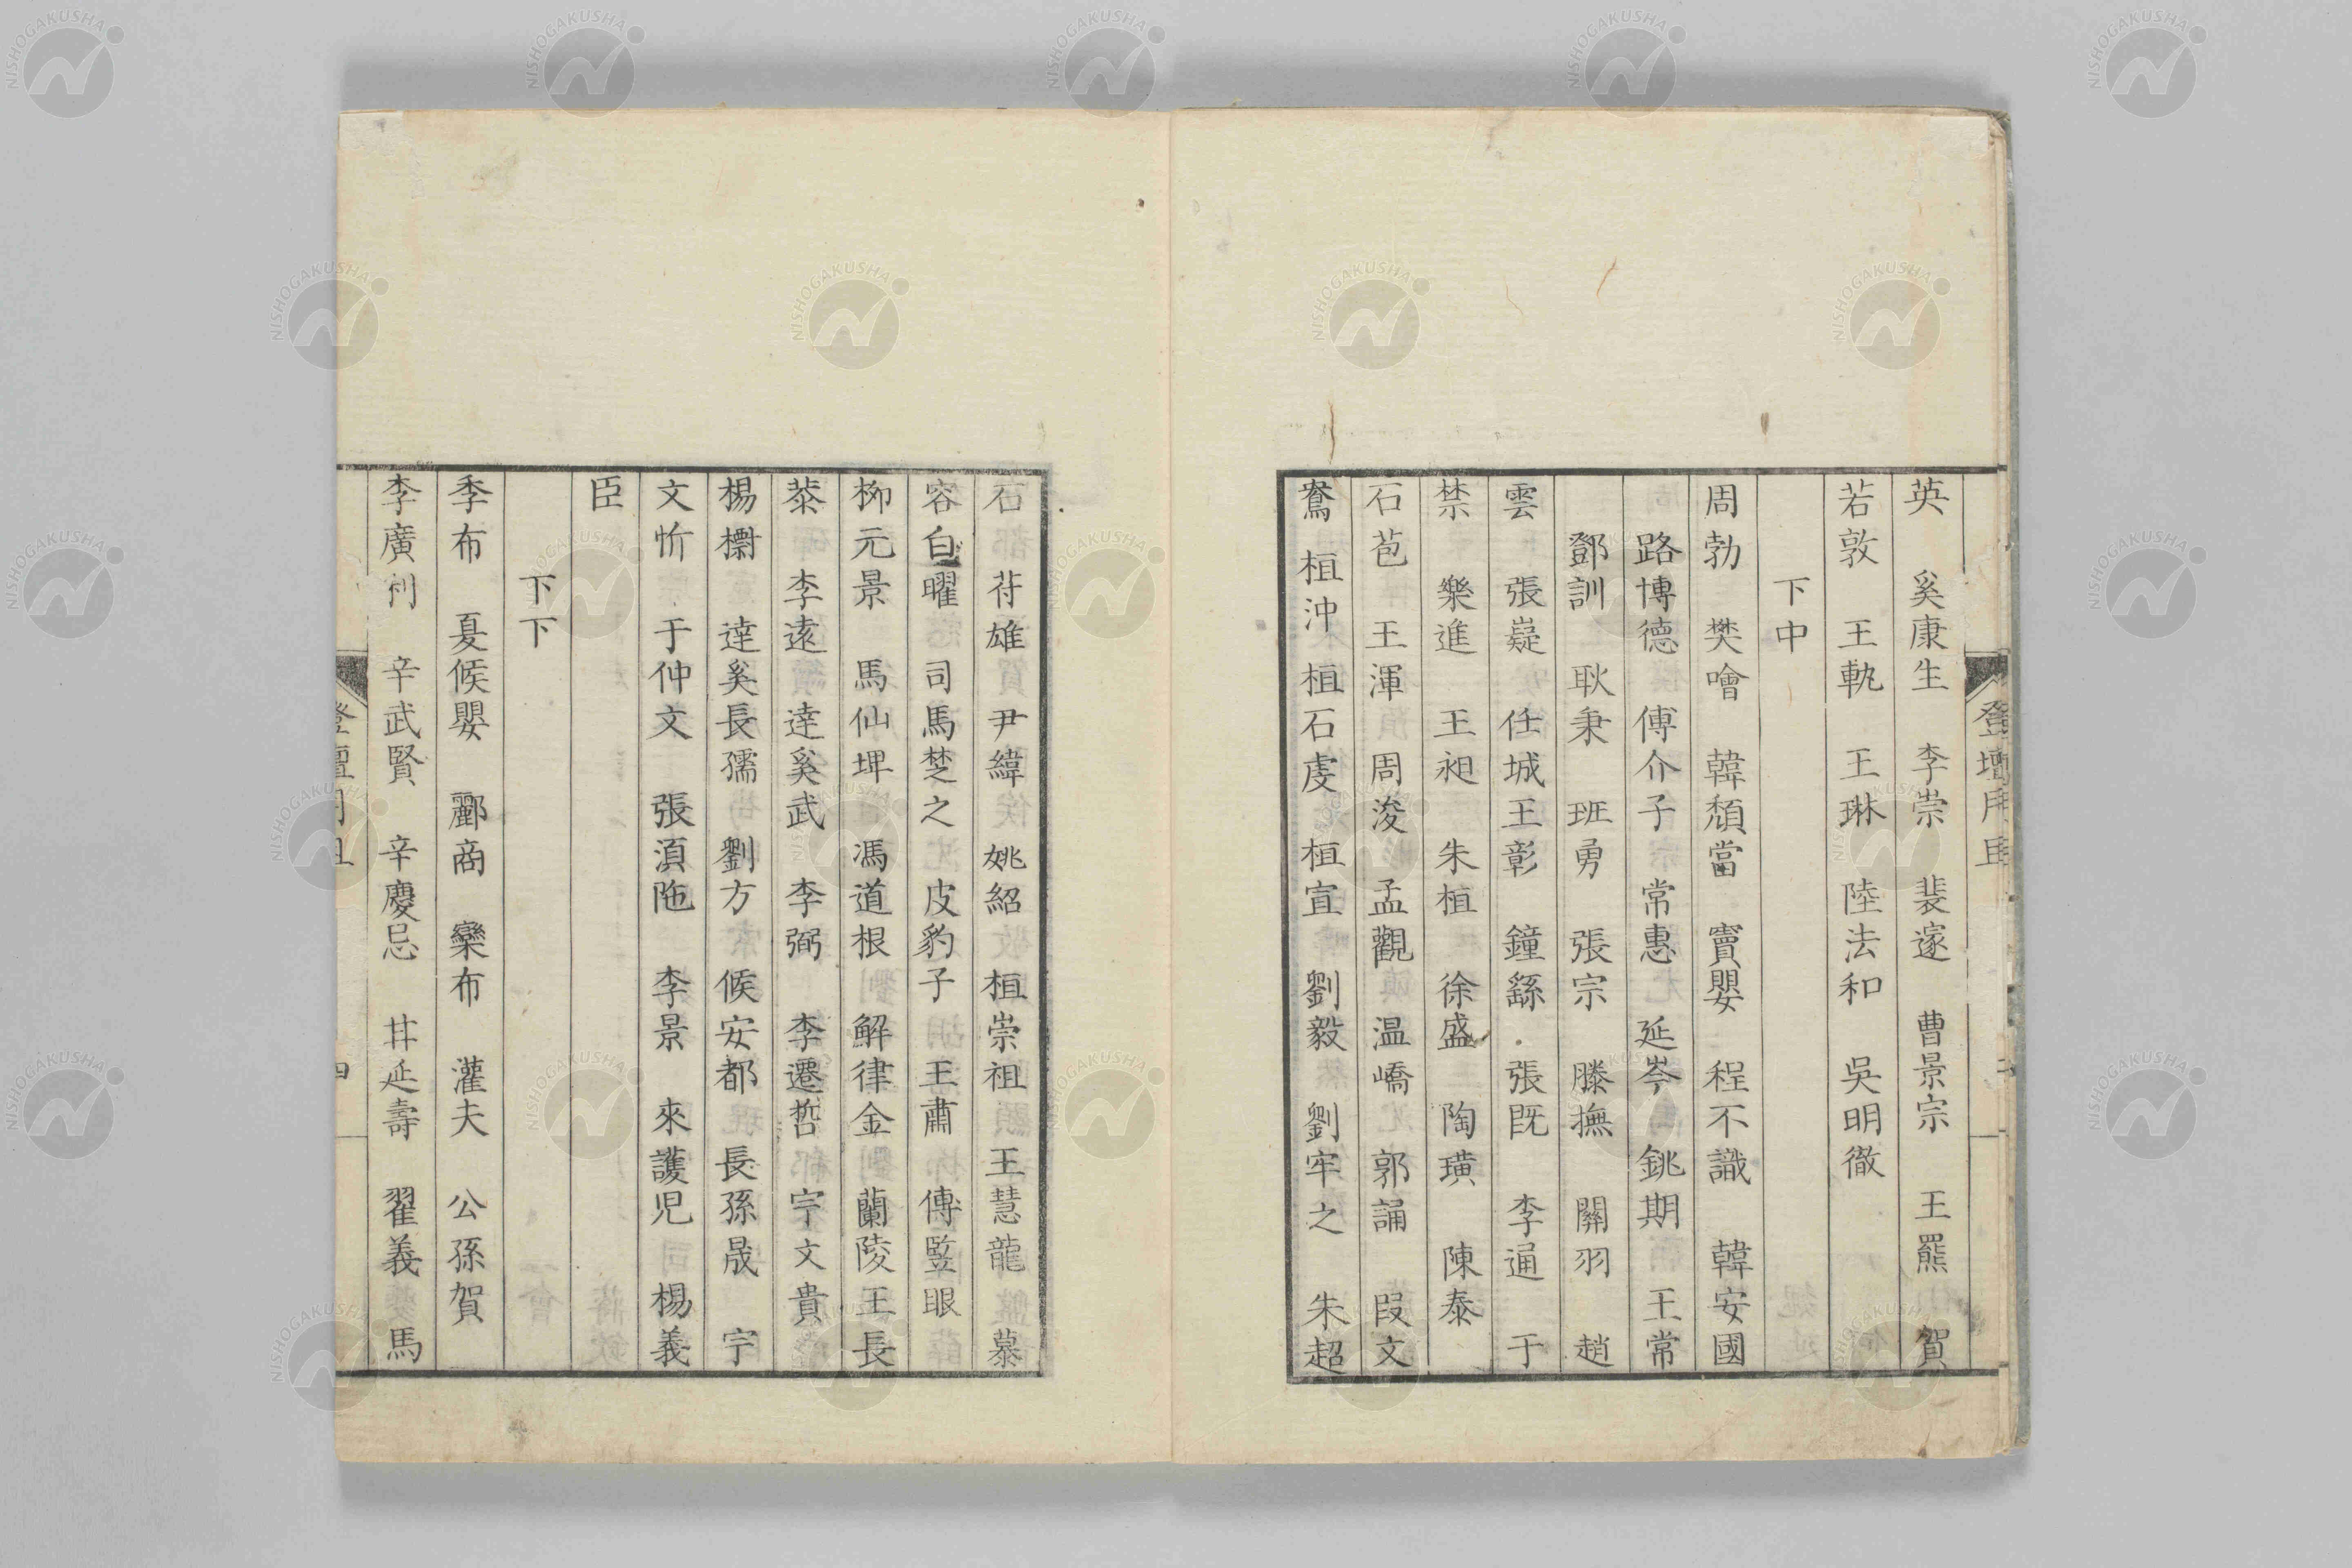 英 奚康生 李崇 裴邃 曹景宗 王羆 賀
若敦 王軌 王琳 陸法和 吳明徹
下中
周勃 樊噲 韓頹當 竇嬰 程不識 韓安國
路博德 傅介子 常惠 延岑 銚期 王常
鄧訓 耿秉 班勇 張宗 滕撫 關羽 趙
雲 張嶷 任城王彰 鐘繇 張既 李通 于
禁 樂進 王昶 朱植 徐盛 陶璜 陳泰
石苞 王渾 周浚 孟觀 温嶠 郭誦 段文
鴦 桓沖 桓石虔 桓宣 劉毅 劉牢之 朱超
石 苻雄 尹緯 姚紹 桓崇祖 王慧龍 慕
容白曜 司馬楚之 皮豹子 王肅 傅豎眼
柳元景 馬仙琕 馮道根 解律金 蘭陵王長
恭 李遠 達奚武 李弼 李遷哲 宇文貴
楊𢷋 達奚長孺 劉方 候安都 長孫晟 宇
文忻 于仲文 張湏陁 李景 來護児 楊義
臣
下下
季布 夏候嬰 酈商 欒布 灌夫 公孫賀
李廣利 辛武賢 辛慶忌 甘延壽 翟義 馬
登壇
四
NISHOGAKUSHA